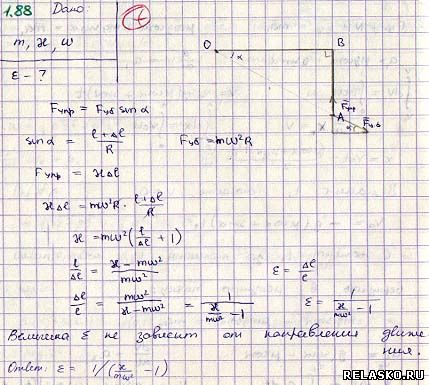 1.88 Дано:
m, ϰ, ω
ε - ?
O α B
A
F⃗упр
x α F⃗уб
Fупр = Fуб sin α
sin α = (l + Δl)/R Fуб = mω²R
Fупр = ϰΔl
ϰΔl = mω²R · (l + Δl)/R
ϰ = mω²(l/Δl + 1)
l/Δl = (ϰ - mω²)/mω² ε = Δl/l
Δl/l = mω²/(ϰ - mω²) = 1/(ϰ/mω² - 1) ε = 1/(ϰ/mω² - 1)
Величина ε не зависит от направления движе
ния.
Ответ: ε = 1/(ϰ/mω² - 1)
RELASKO.RU